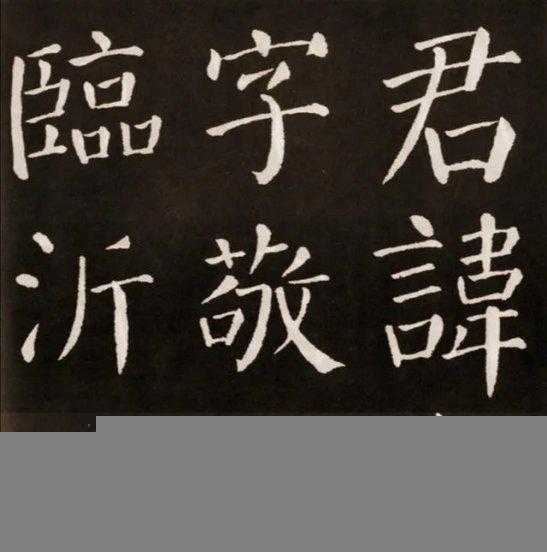 君諱
字敬
臨沂